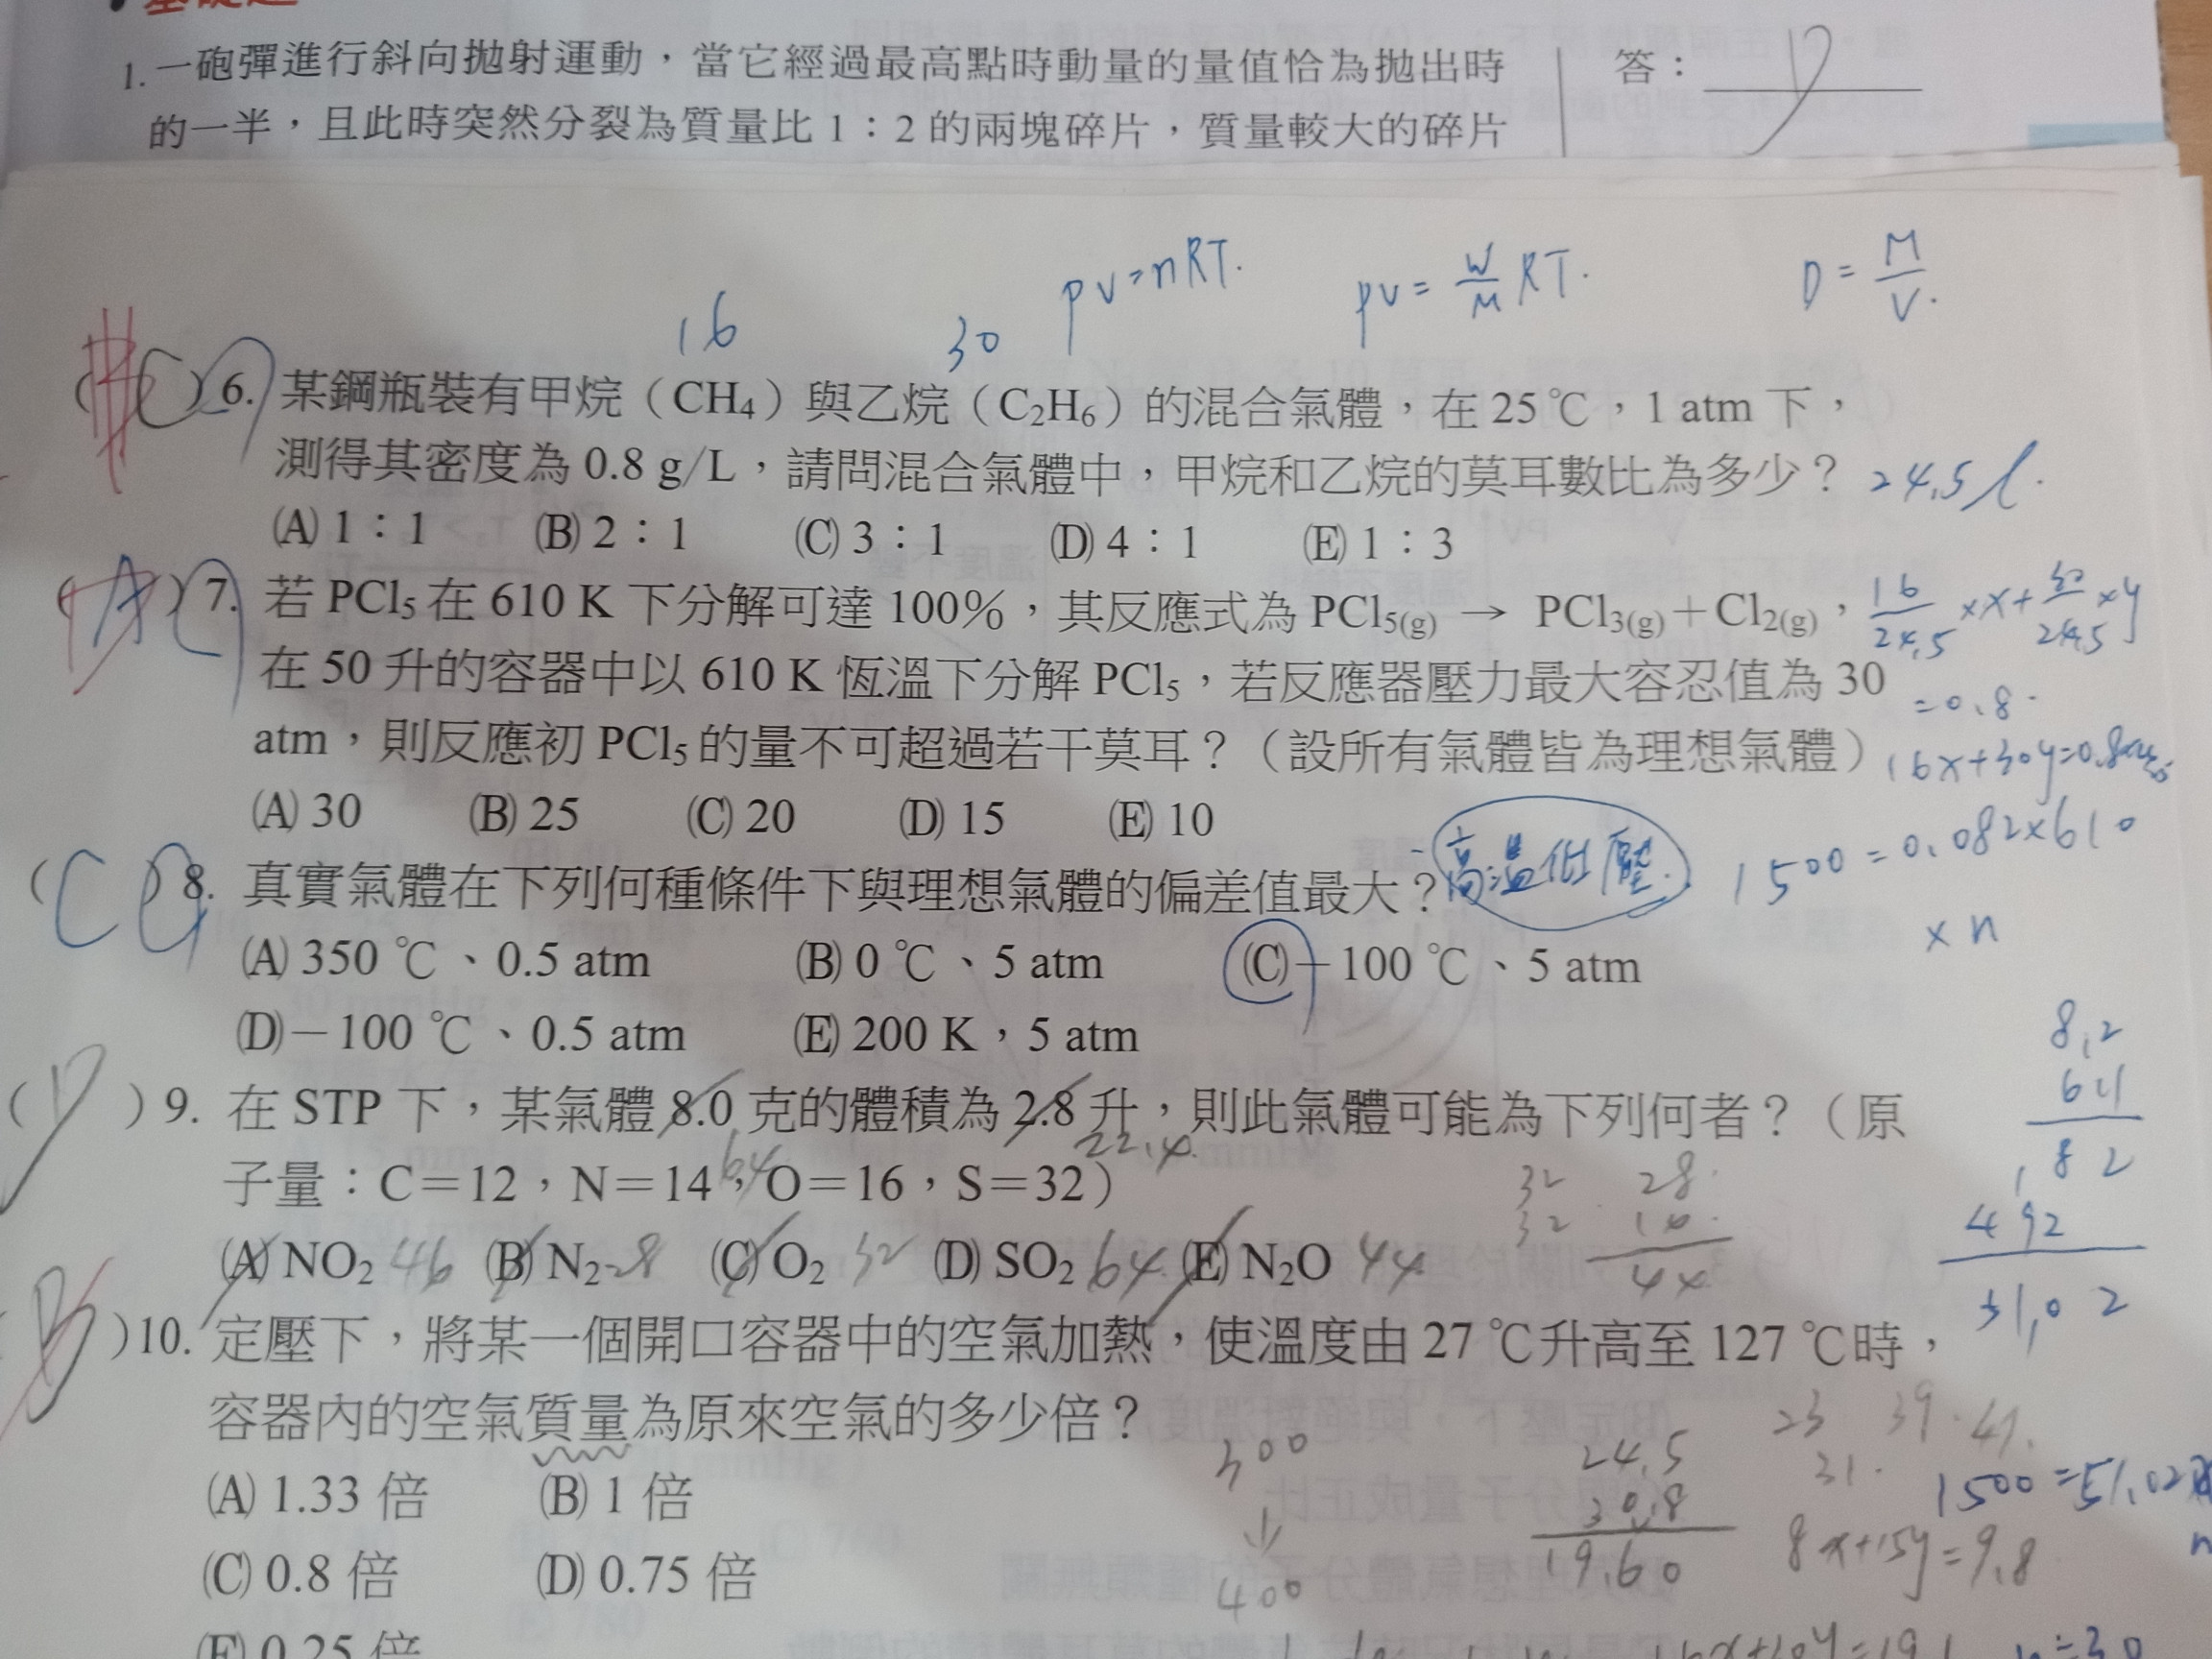 1. 一砲彈進行斜向拋射運動，當它經過最高點時動量的量值恰為拋出時
答：D
的一半，且此時突然分裂為質量比 1：2 的兩塊碎片，質量較大的碎片
PV=nRT.
PV = W/M RT.
D = M/V.
16
30
(C) 6. 某鋼瓶裝有甲烷（CH₄）與乙烷（C₂H₆）的混合氣體，在 25℃，1 atm 下，
測得其密度為 0.8 g/L，請問混合氣體中，甲烷和乙烷的莫耳數比為多少？ 24.5 l.
(A) 1：1 (B) 2：1 (C) 3：1 (D) 4：1 (E) 1：3
( ) 7. 若 PCl₅ 在 610 K 下分解可達 100%，其反應式為 PCl₅(g) → PCl₃(g)＋Cl₂(g)，
16/24.5 ×x+ 30/24.5 ×y
在 50 升的容器中以 610 K 恆溫下分解 PCl₅，若反應器壓力最大容忍值為 30
=0.8.
atm，則反應初 PCl₅ 的量不可超過若干莫耳？（設所有氣體皆為理想氣體）
16x+30y=0.8
(A) 30 (B) 25 (C) 20 (D) 15 (E) 10
高溫低壓
1500=0.082×610
×n
(C) 8. 真實氣體在下列何種條件下與理想氣體的偏差值最大？
(A) 350 ℃、0.5 atm (B) 0 ℃、5 atm (C)－100 ℃、5 atm
(D)－100 ℃、0.5 atm (E) 200 K，5 atm
8.2
61
82
492
(D) 9. 在 STP 下，某氣體 8.0 克的體積為 2.8 升，則此氣體可能為下列何者？（原
64
22.4
子量：C＝12，N＝14，O＝16，S＝32）
32 28
32 16
44
(A) NO₂ 46 (B) N₂ 28 (C) O₂ 32 (D) SO₂ 64 (E) N₂O 44
(B) 10. 定壓下，將某一個開口容器中的空氣加熱，使溫度由 27 ℃升高至 127 ℃時，
容器內的空氣質量為原來空氣的多少倍？
300
↓
400
24.5
0.8
19.60
23 39
31.
1500=51.02
8x+15y=9.8
(A) 1.33 倍 (B) 1 倍
(C) 0.8 倍 (D) 0.75 倍
(E) 0.25 倍